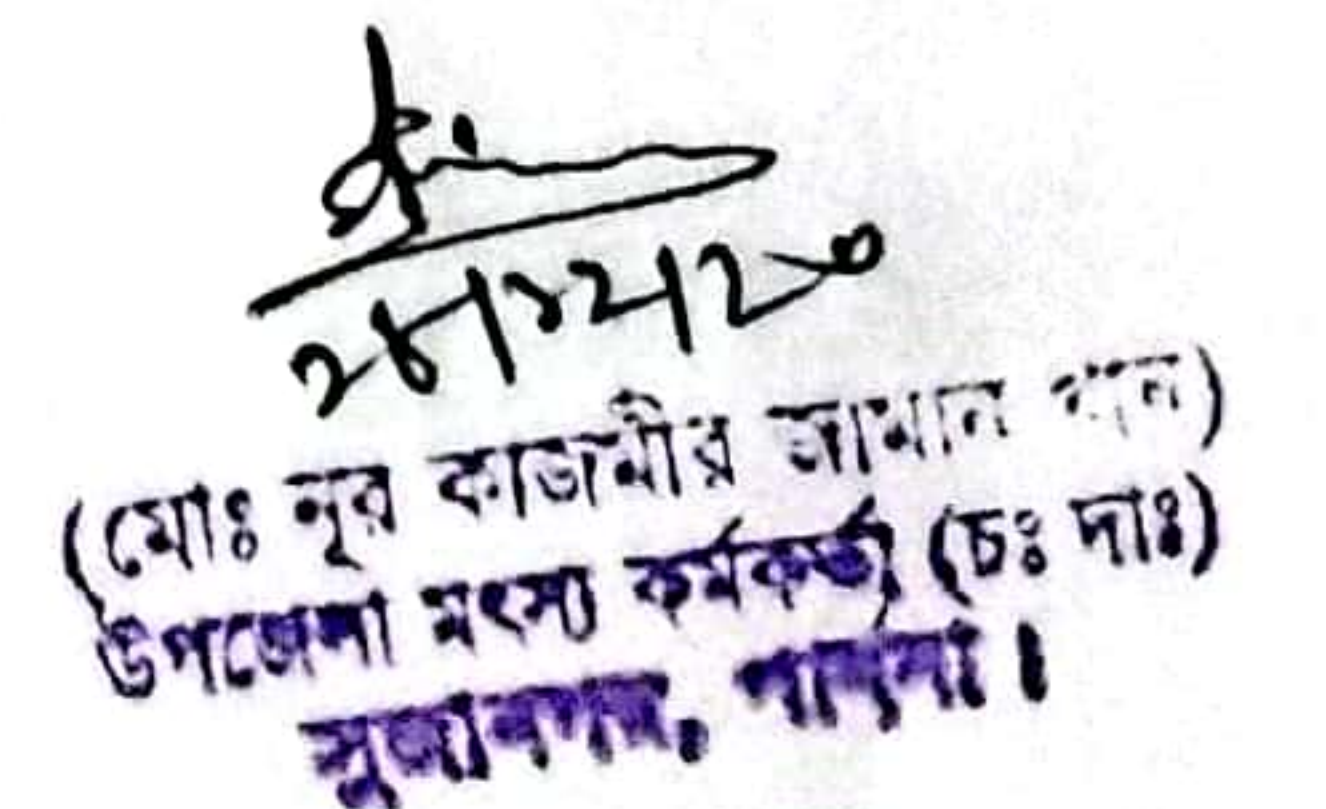 ২৮/১২/২০
(মোঃ নূর কাজমীর জামান খান)
উপজেলা মৎস্য কর্মকর্তা (চঃ দাঃ)
সুজানগর, পাবনা।